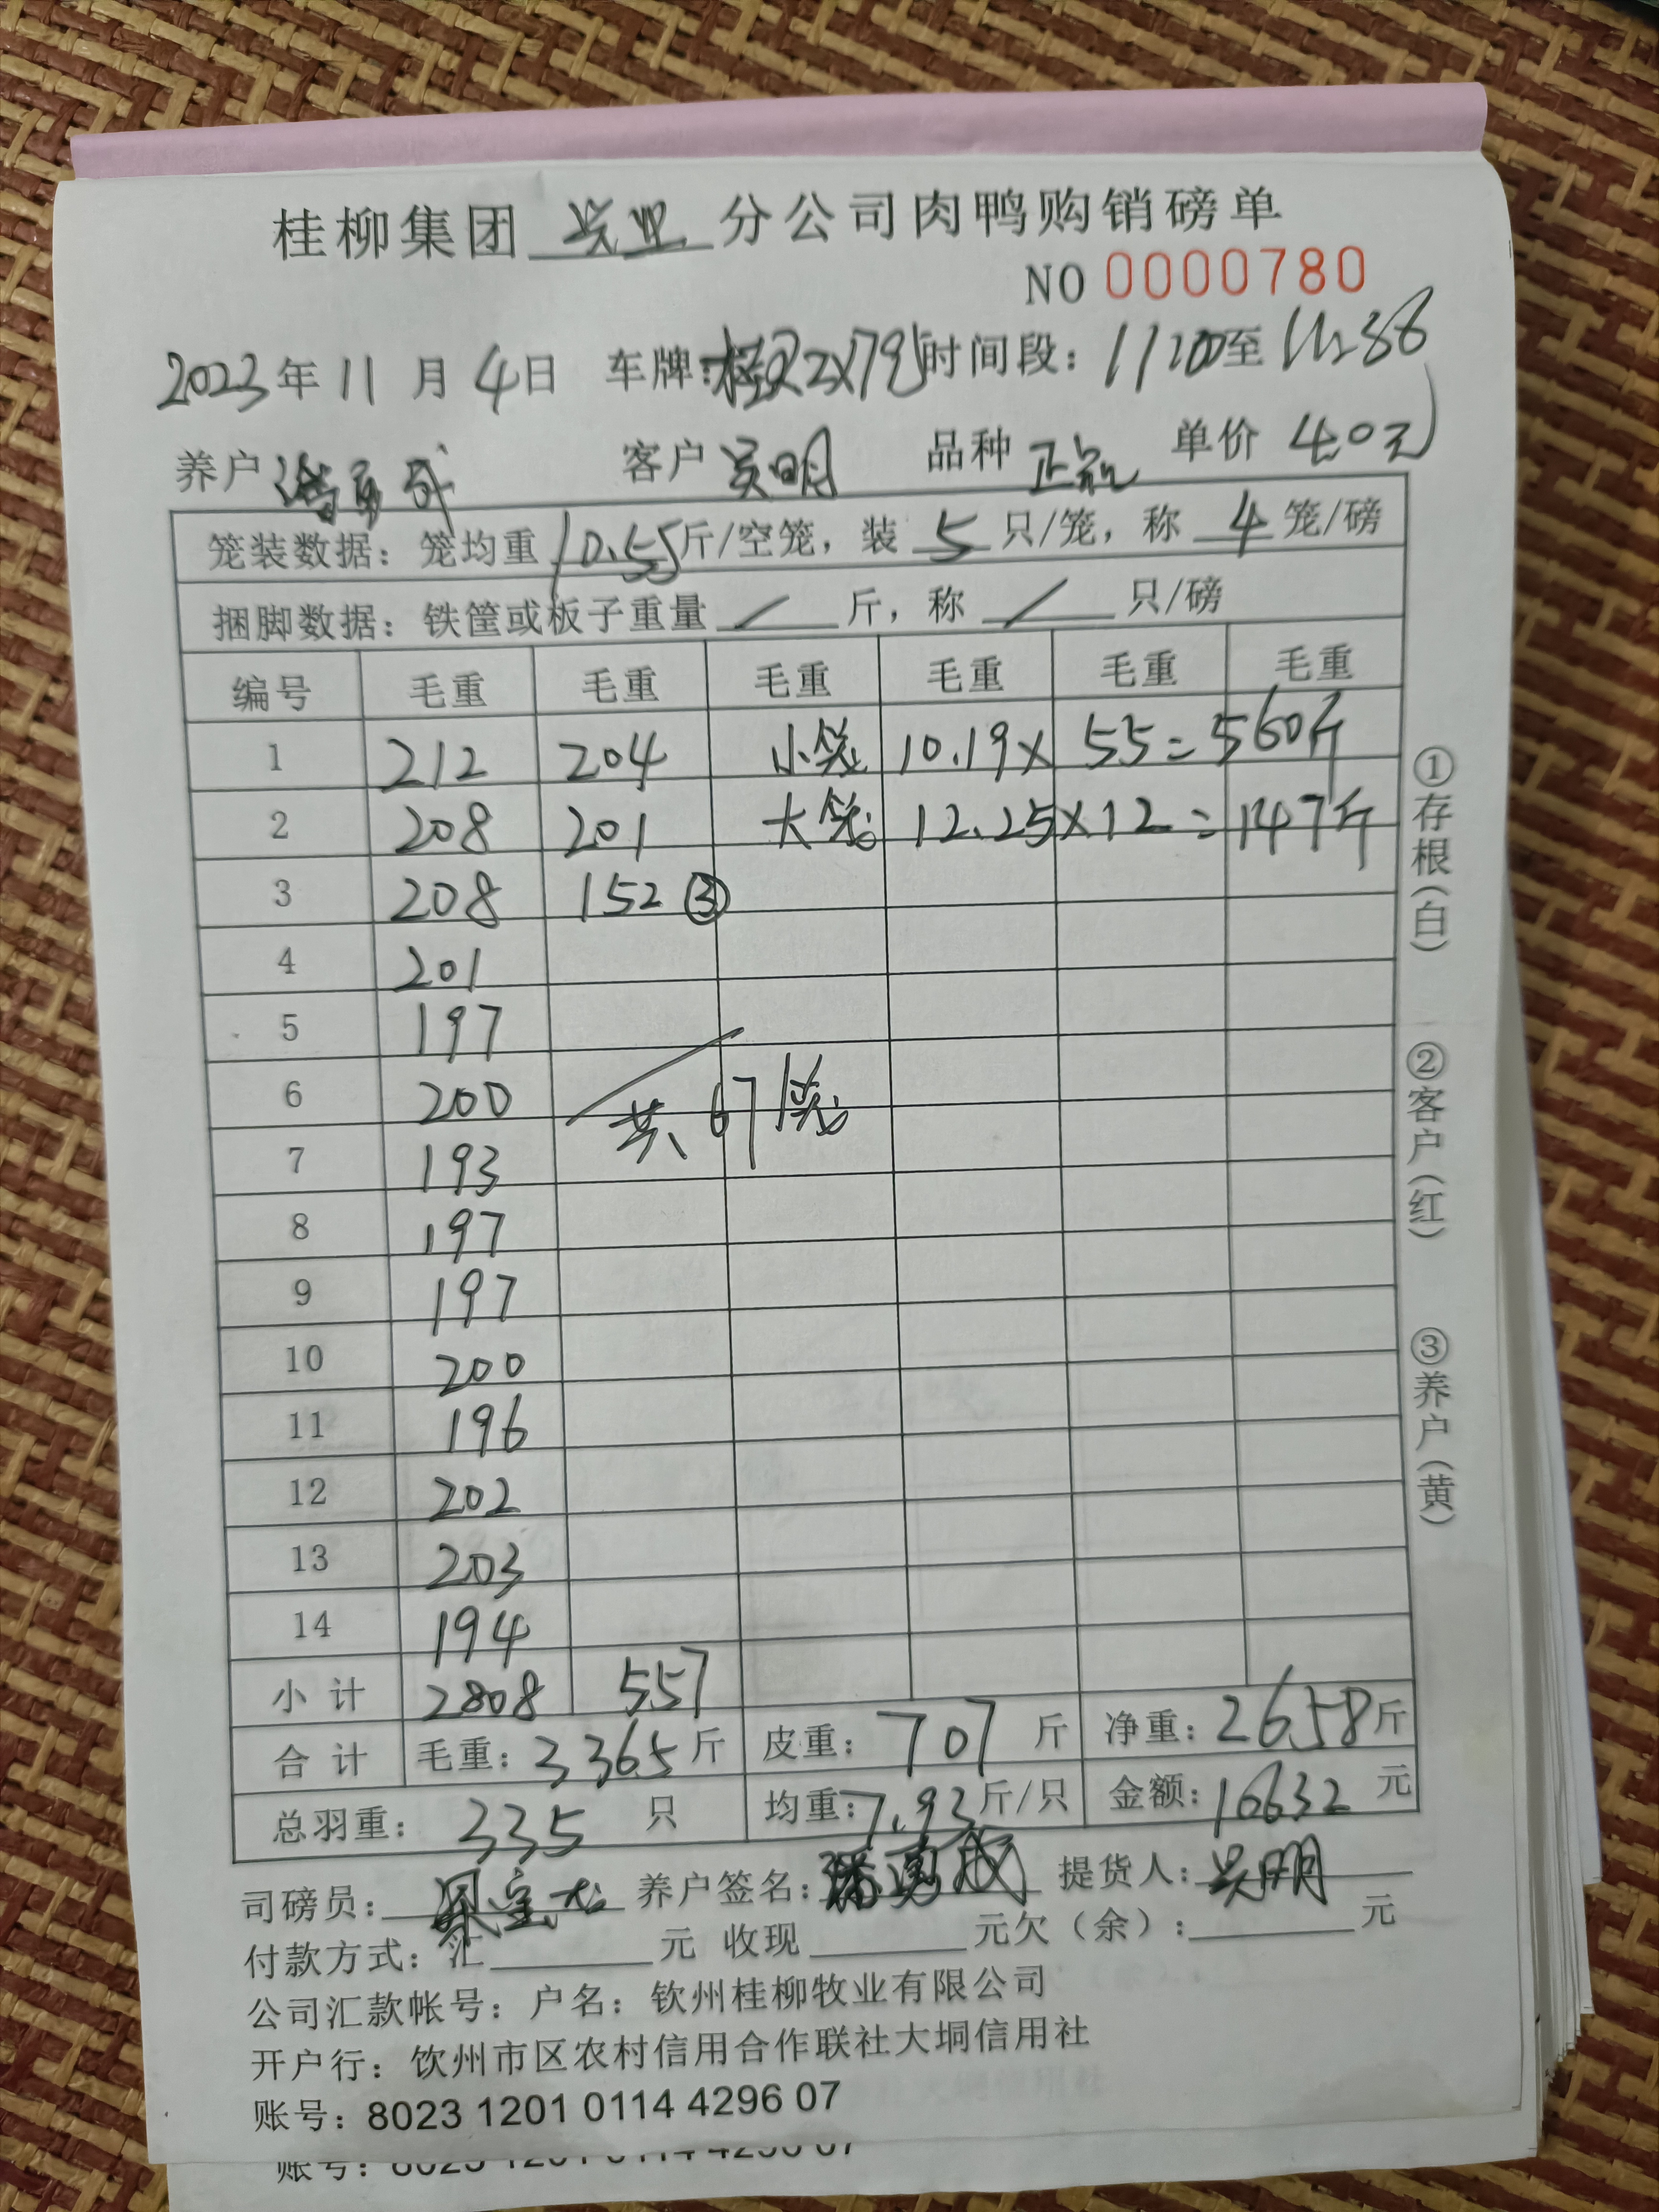 桂柳集团 兴业 分公司肉鸭购销磅单
NO 0000780
2023年 11 月 4日 车牌: 时间段: 11:00至
养户 潘勇成 客户 吴明 品种 单价 4.0元
笼装数据: 笼均重 10.55斤/空笼, 装 5 只/笼, 称 4 笼/磅
捆脚数据: 铁筐或板子重量 / 斤, 称 / 只/磅
编号 毛重 毛重 毛重 毛重 毛重 毛重
1 212 204 小笼 10.19 × 55 = 560斤
2 208 201 大笼 12.25 × 12 = 147斤
3 208 152 ③
4 201
5 197
6 200 共 67 笼
7 193
8 197
9 197
10 200
11 196
12 202
13 203
14 194
小计 2808 557
合计 毛重: 3365斤 皮重: 707 斤 净重: 2658斤
总羽重: 335 只 均重: 7.93斤/只 金额: 10632 元
司磅员: 养户签名: 潘勇成 提货人: 吴明
付款方式: 汇 元 收现 元欠(余): 元
公司汇款帐号: 户名: 钦州桂柳牧业有限公司
开户行: 钦州市区农村信用合作联社大垌信用社
账号: 8023 1201 0114 4296 07
账号: 8023 1201 0114 4296 07
①存根(白)
②客户(红)
③养户(黄)